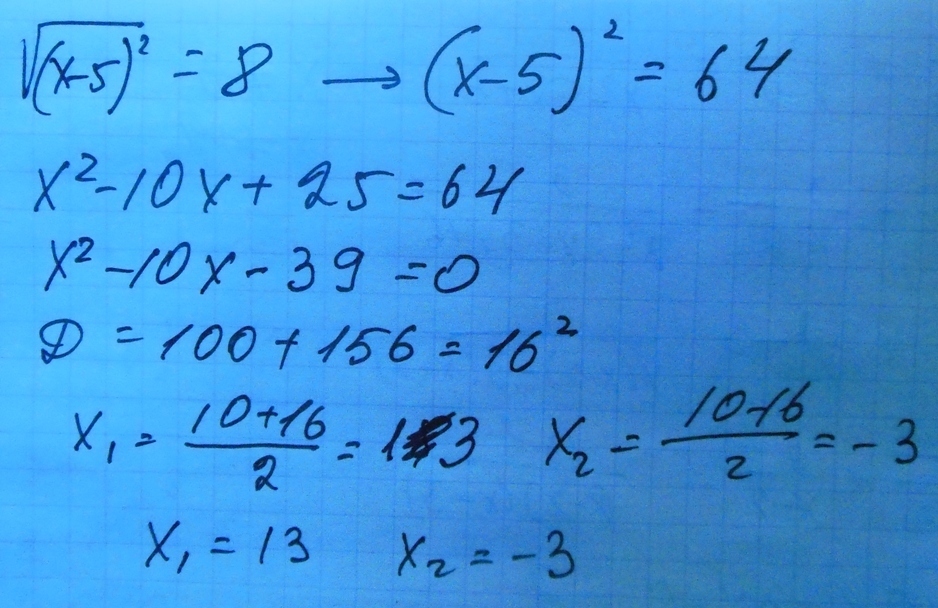 √(x-5)² = 8 → (x-5)² = 64
x²-10x+25=64
x²-10x-39=0
D = 100+156=16²
x₁ = (10+16)/2 = 13 x₂ = (10-16)/2 = -3
x₁ = 13 x₂ = -3